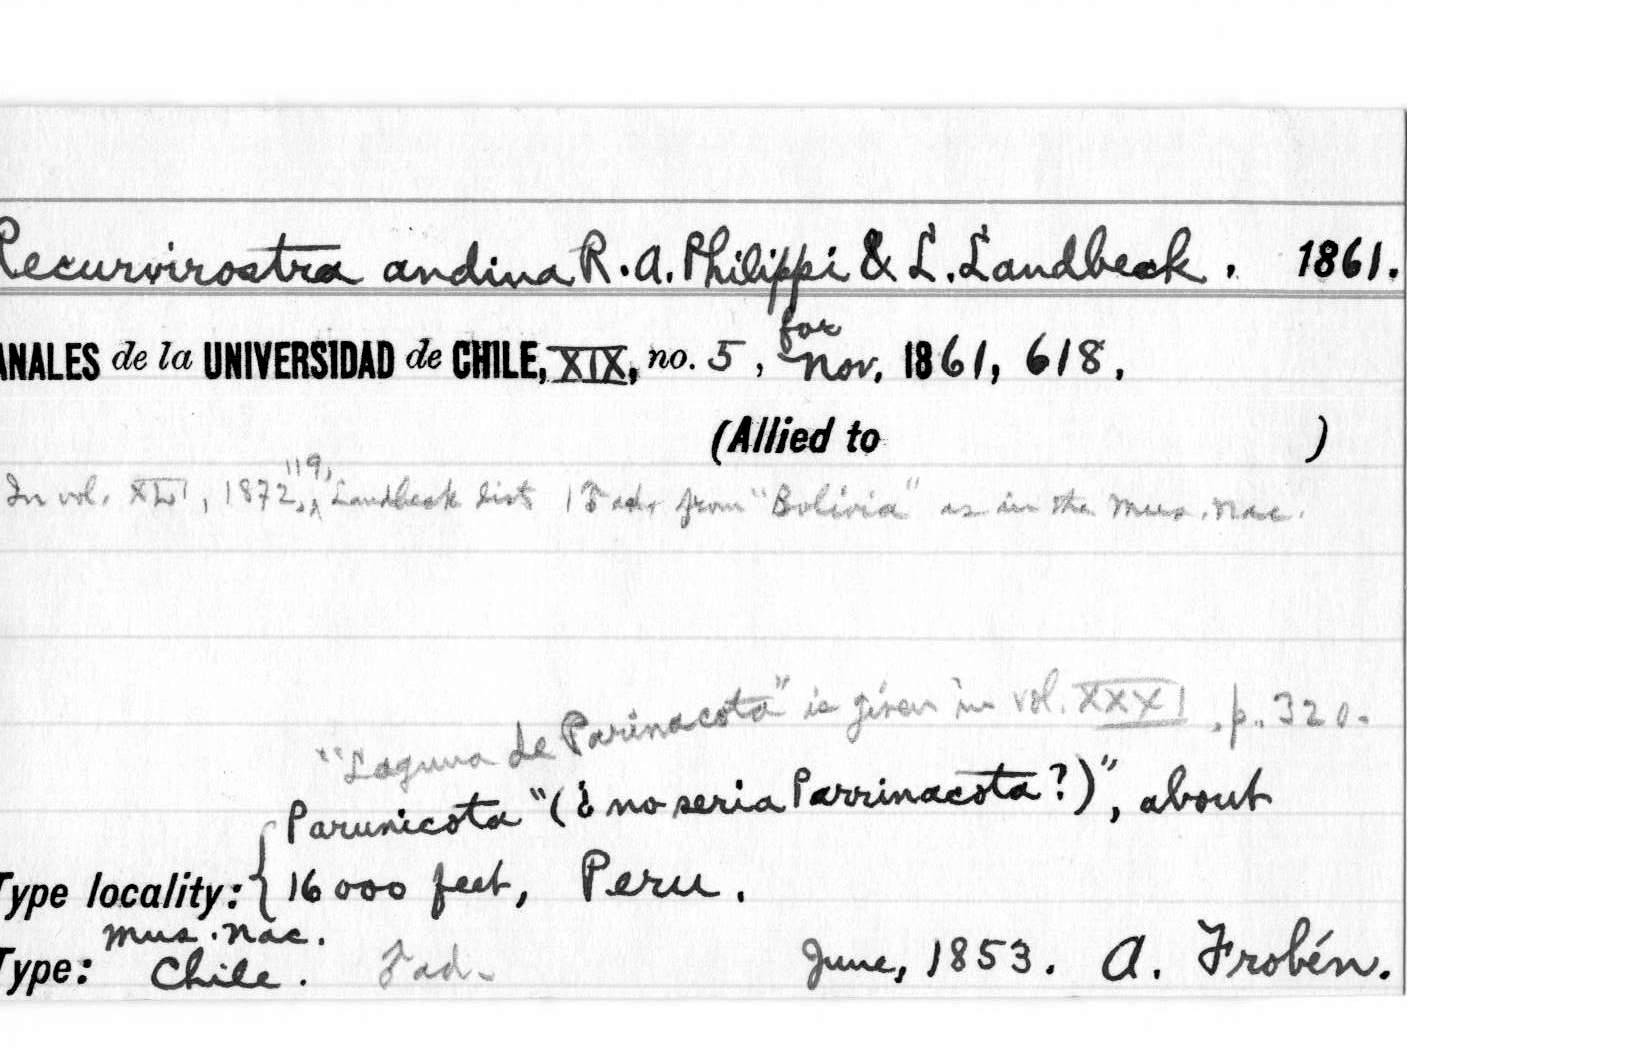 Recurvirostra andina R. A. Philippi & L. Landbeck. 1861.
ANALES de la UNIVERSIDAD de CHILE, XIX, no. 5, for Nov. 1861, 618.
(Allied to )
In vol. XLI, 1872, 119, Landbeck lists 1 ad. from "Bolivia" as in the Mus. Nac.
"Laguna de Parinacota" is given in vol. XXXI, p. 320.
Parunicota "(¿ no seria Parrinacota?)", about
Type locality: 16000 feet, Peru.
Mus. Nac.
Type: Chile. ad. June, 1853. A. Frobén.